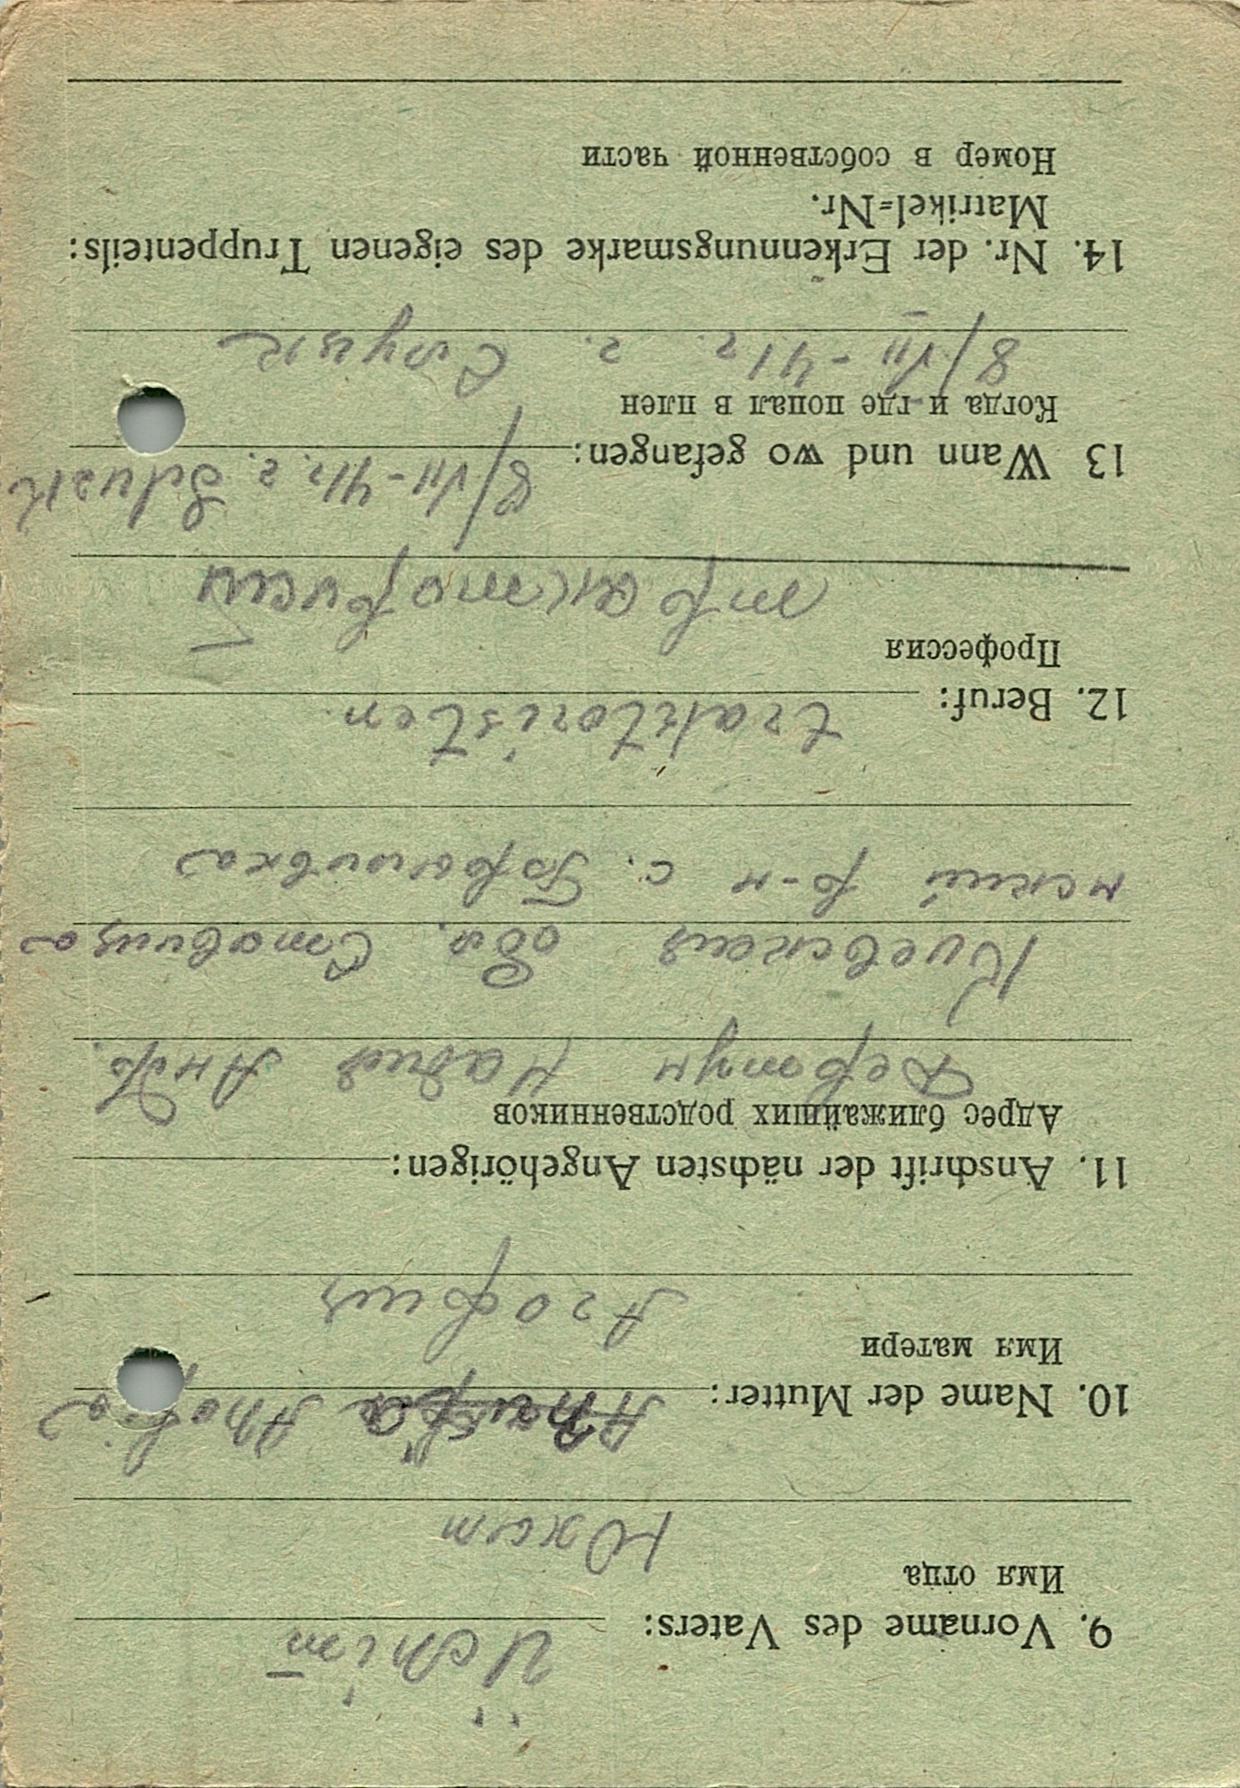 9. Vorname des Vaters: Üchim
Имя отца
Юхим
10. Name der Mutter:
Имя матери
Агофия
11. Anschrift der nächsten Angehörigen:
Адрес ближайших родственников
Надия Андр.
Киевская обл. Ставища
нский р-н с.
12. Beruf: traktoristen.
Профессия
тракторист
13 Wann und wo gefangen: 8/VII-41г. г. Sluzk
Когда и где попал в плен
8/VII-41г. г. Слуцк
14. Nr. der Erkennungsmarke des eigenen Truppenteils:
Matrikel=Nr.
Номер в собственной части